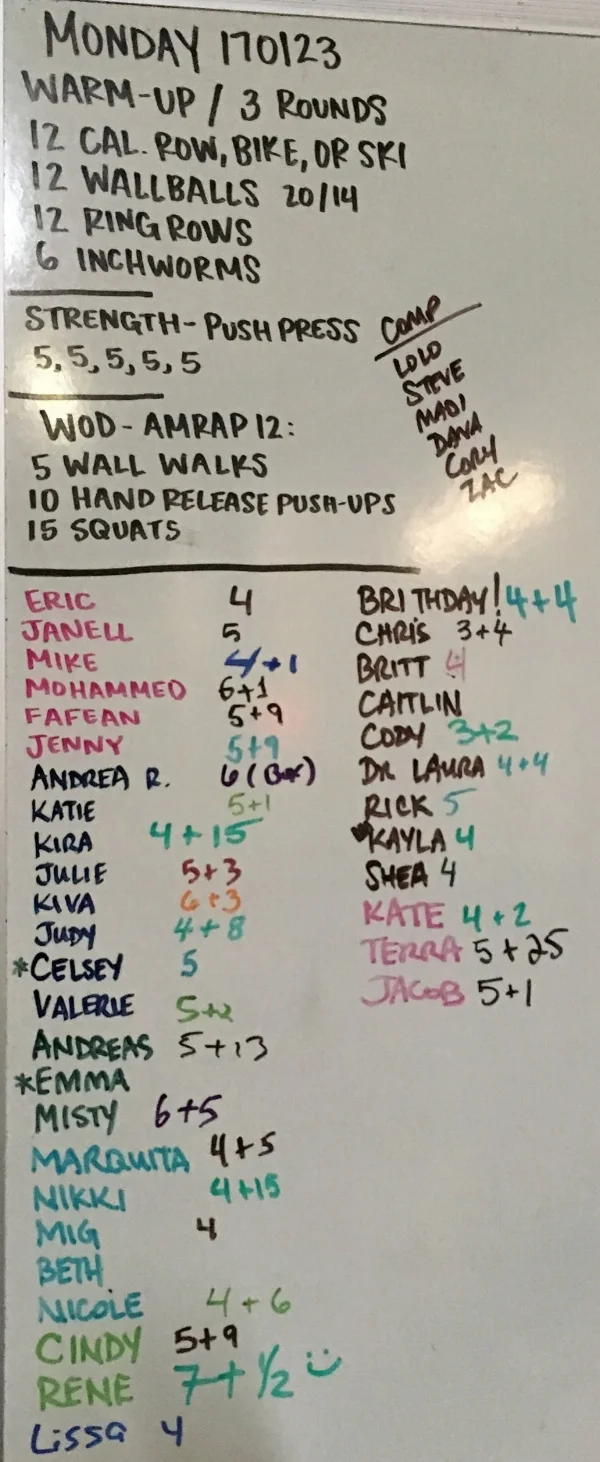 MONDAY 170123
WARM-UP / 3 ROUNDS
12 CAL. ROW, BIKE, OR SKI
12 WALLBALLS 20/14
12 RING ROWS
6 INCHWORMS
STRENGTH- PUSH PRESS
5, 5, 5, 5, 5
COMP
LOLO
STEVE
MADI
DANA
CORY
ZAC
WOD- AMRAP 12:
5 WALL WALKS
10 HAND RELEASE PUSH-UPS
15 SQUATS
ERIC 4
JANELL 5
MIKE 4+1
MOHAMMED 6+1
FAFEAN 5+9
JENNY 5+9
ANDREA R. 6 (Box)
KATIE 5+1
KIRA 4+15
JULIE 5+3
KIVA 6+3
JUDY 4+8
*CELSEY 5
VALERIE 5+2
ANDREAS 5+13
*EMMA
MISTY 6+5
MARQUITA 4+5
NIKKI 4+15
MIG 4
BETH
NICOLE 4+6
CINDY 5+9
RENE 7+1/2
Lissa 4
BRITHDAY! 4+4
CHRIS 3+4
BRITT 4
CAITLIN
CODY 3+2
DR LAURA 4+4
RICK 5
KAYLA 4
SHEA 4
KATE 4+2
TERRA 5+25
JACOB 5+1